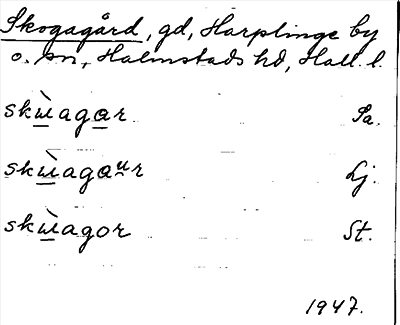 Skogagård, gd, Harplinge by
o. sn, Halmstads hd, Hall. l.
skẁagar Sa.
skẁagaur Lj.
skẁagor St.
1947.